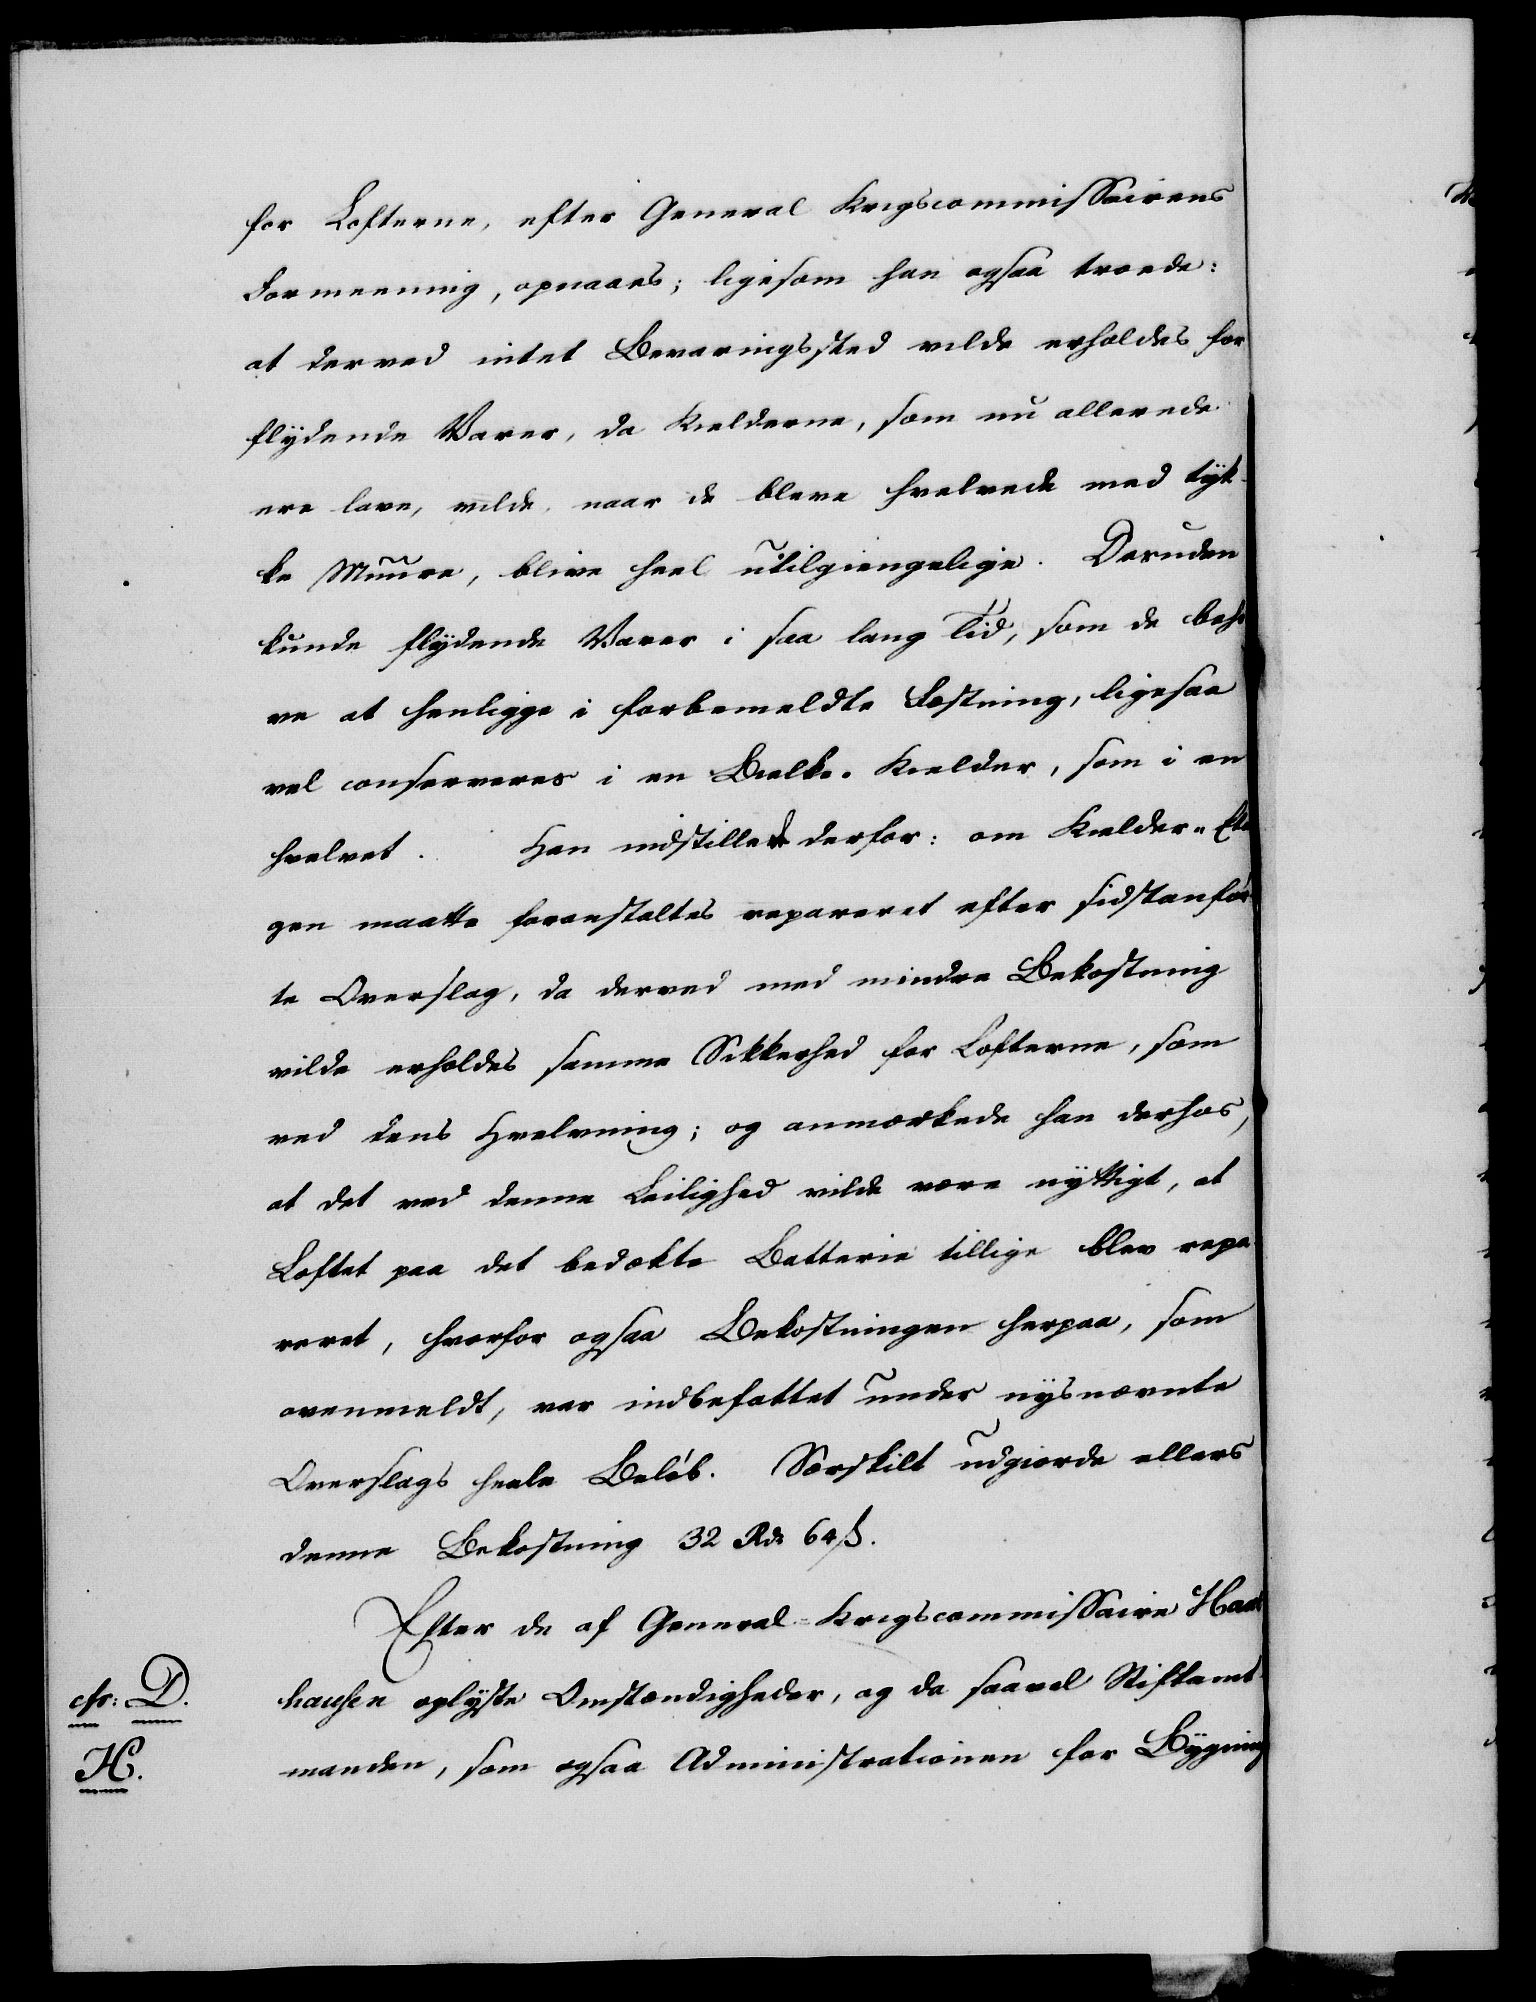 for Lofterne, efter General Krigscommissairens
Formeening, opnaaes; ligesom han ogsaa troede:
at derved intet Bevaringssted vilde erholdes for
flydende Varer, da Kielderne, som nu allerede
ere lave, vilde, naar de bleve hvelvede med tyk-
ke Muure, blive heel utilgiengelige. Desuden
kunde flydende Varer i saa lang Tid, som de beho
ve at henligge i forbemeldte Fæstning, ligesaa
vel conserveres i en Bielke-Kielder, som i en
hvelvet. Han indstillede derfor: om Kielder-Eta
gen maatte foranstaltes repareret efter sidstanför-
te Overslag, da derved med mindre Bekostning
vilde erholdes samme Sikkerhed for Lofterne, som
ved dens Hvelvning; og anmærkede han derhos,
at det ved denne Leilighed vilde være nyttigt, at
Loftet paa det bedækte Batterie tillige blev repa-
reret, hvorfor ogsaa Bekostningen herpaa, som
ovenmeldt, var indbefattet under nysnævnte
Overslags heele Belöb. Særskilt udgiorde ellers
denne Bekostning 32 Rd 64 ß.
Efter de af General-Krigscommissaire Haxt
cfr: D. hausen oplyste Omstændigheder, og da saavel Stiftamt-
H. manden, som ogsaa Administrationen for Bygning